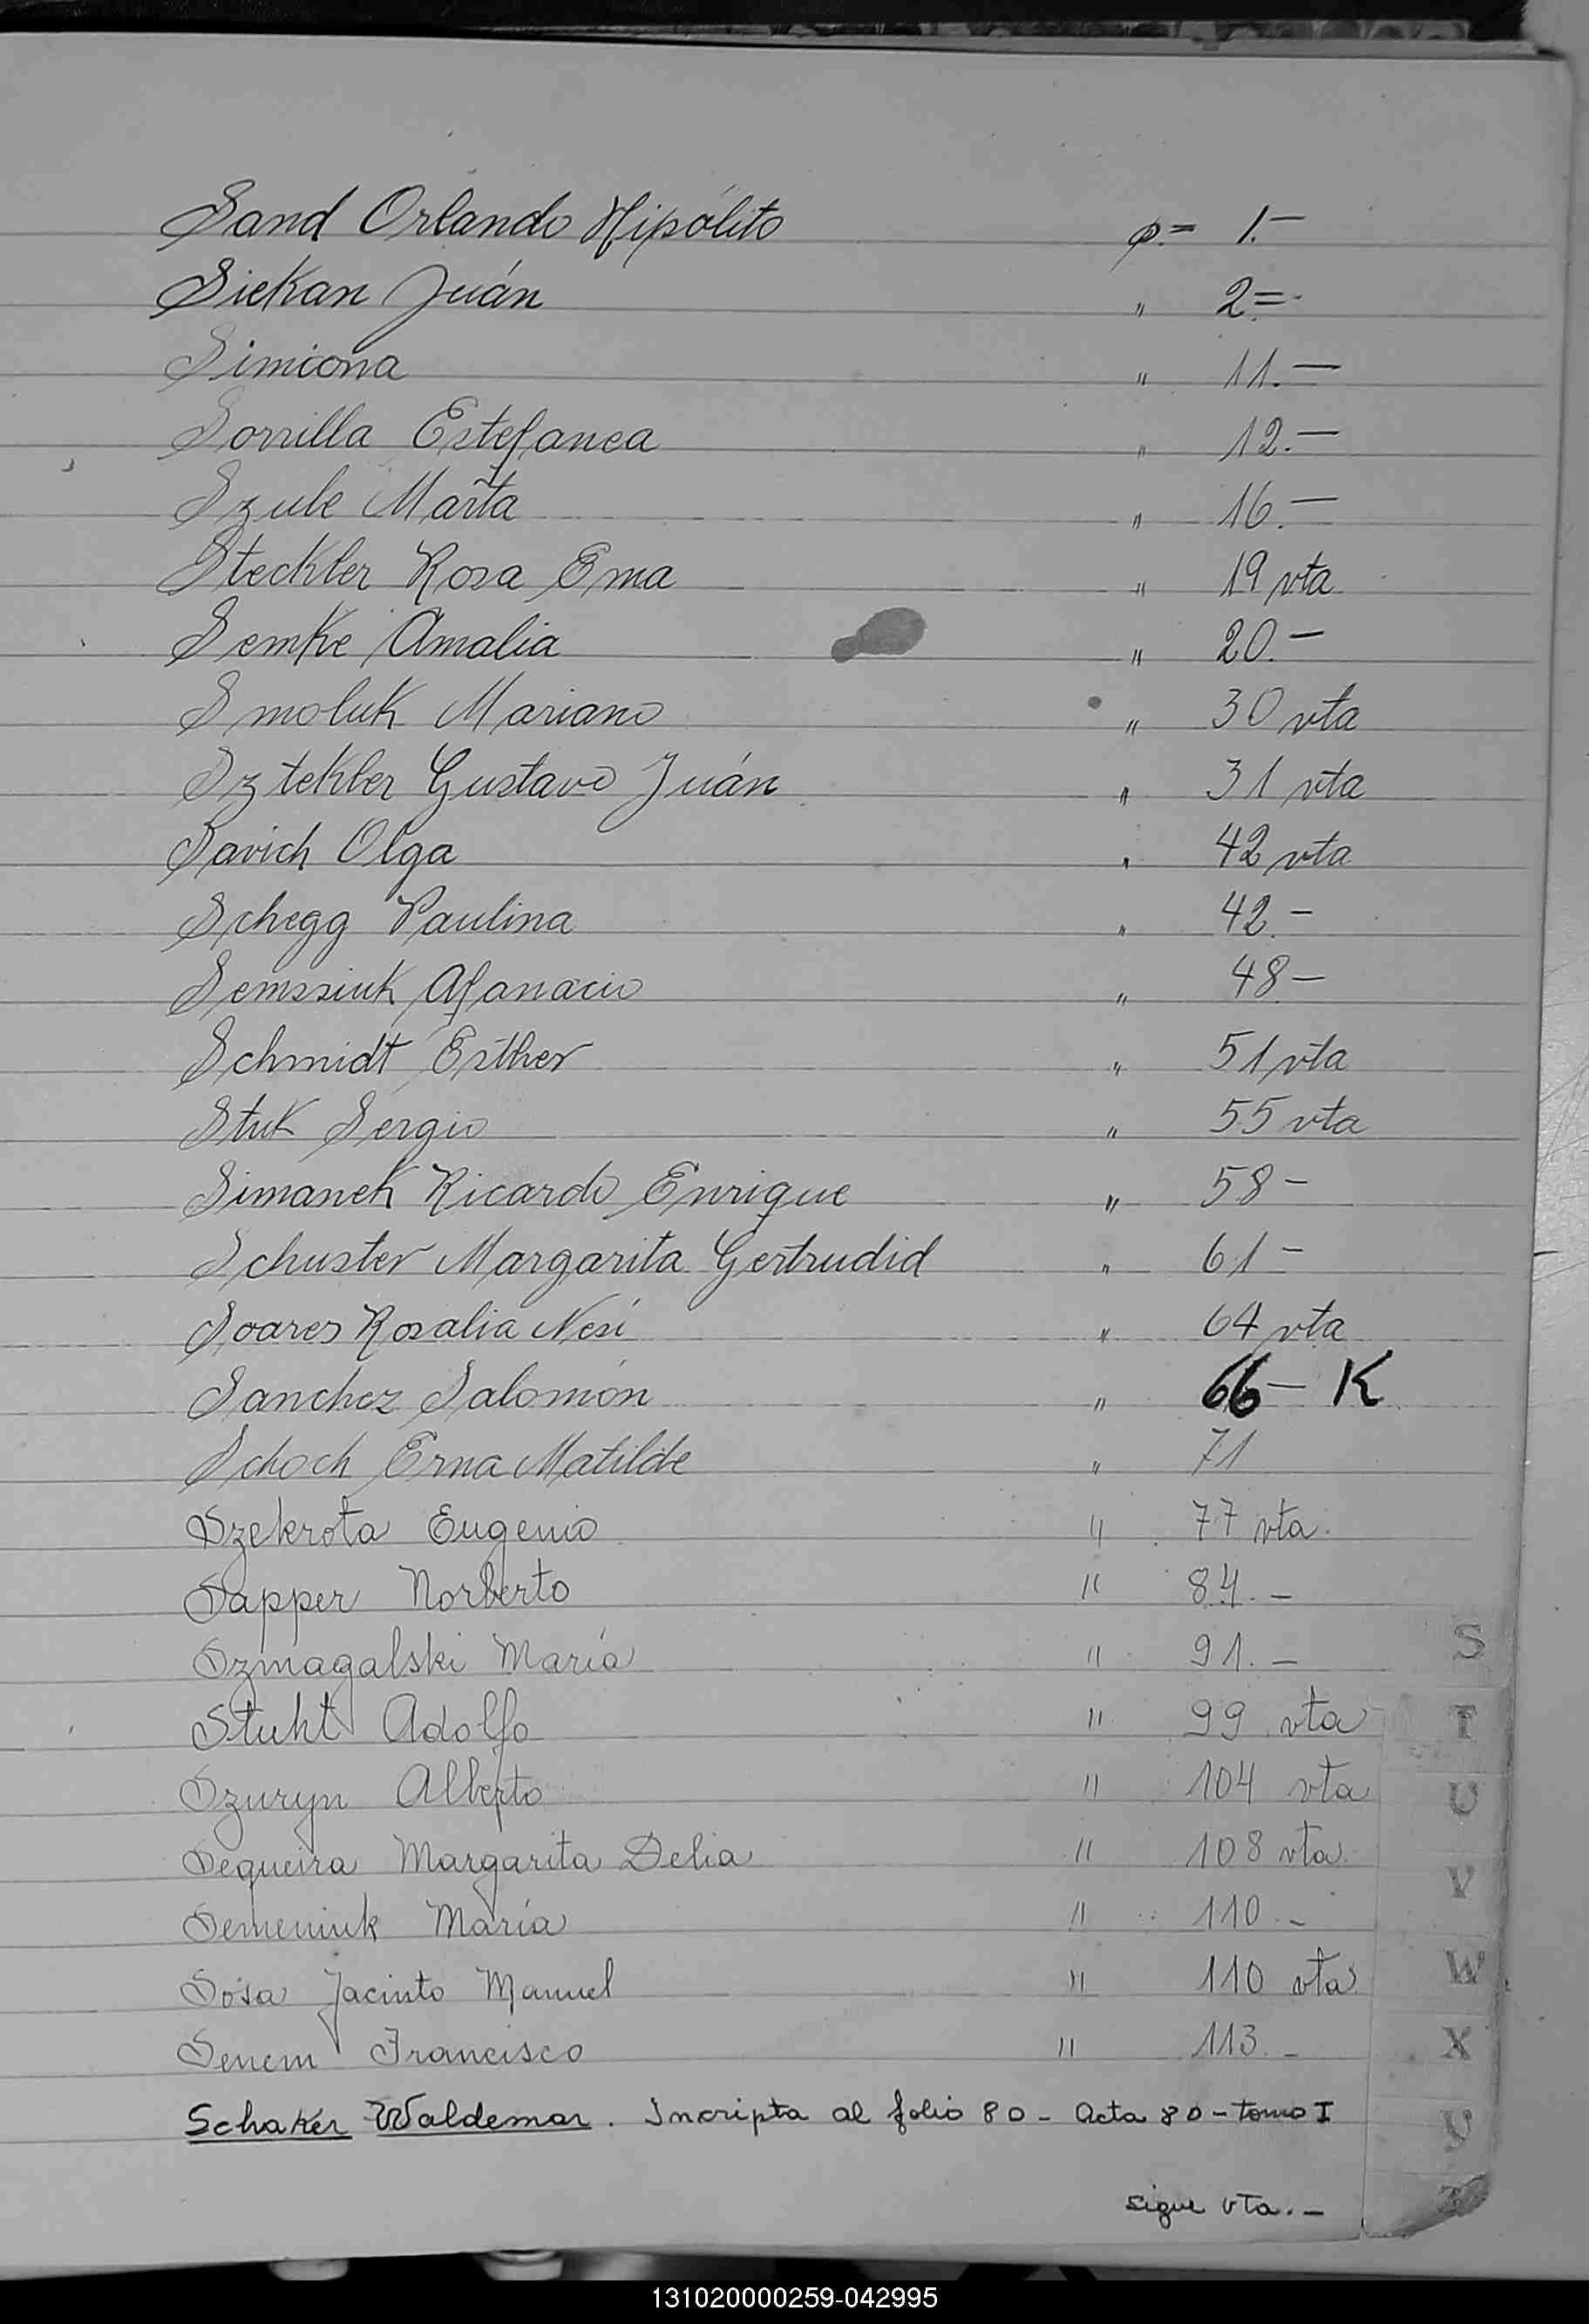 Sand Orlando Hipólito p.= 1.-
Siekan Juán " 2=.
Simiona " 11.-
Sorrilla Estefanea " 12.-
Szule Marta " 16.-
Steckler Rosa Ema " 19 vta
Semke Amalia " 20.-
Smoluk Mariano " 30 vta
Sztekler Gustavo Juán " 31 vta
Savich Olga " 42 vta
Schegg Paulina " 42.-
Semssiuk Afanacio " 48-
Schmidt Esther " 51 vta
Stuk Sergio " 55 vta
Simanek Ricardo Enrique " 58-
Schuster Margarita Gertrudid " 61-
Soares Rosalia Nesi " 64 vta
Sanchez Salomón " 66- K
Schoch Erna Matilde " 71
Szekrota Eugenio " 77 vta.
Sapper Norberto " 84.-
Szmagalski María " 91.-
S
Stuht Adolfo " 99 vta
T
Szuryn Alberto " 104 vta
U
Sequeira Margarita Delia " 108 vta
V
Semeniuk María " 110.-
Sosa Jacinto Manuel " 110 vta
W
Senem Francisco " 113.-
X
Schaker Waldemar. Incripta al folio 80- Acta 80-tomo I
Y
sigue vta.-
Z
131020000259-042995